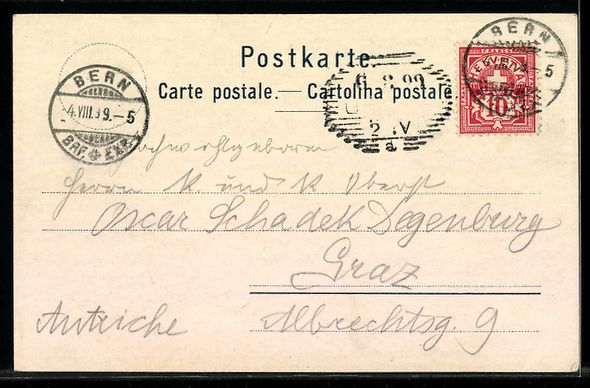 Postkarte.
Carte postale. — Cartolina postale.
BERN
4.VIII.99.–5
BRF. EXP.
6 8 99
2 V
a
BERN
5
FRANCO
HELVETIA
10
Hochwohlgeboren
Herrn K. und K. Oberst
Oscar Schadek Degenburg
Graz
Autriche
Albrechtsg. 9